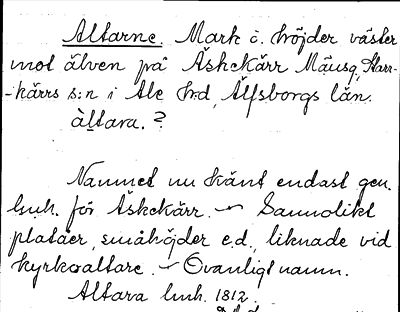 Altarne. Mark o. höjder väster
mot älven på Äskekärr Mäusg, Starr-
-kärrs s:n i Ale hrd, Älfsborgs län.
àltara. ?
Namnet nu känt endast gen.
lmh. för Äskekärr. ~ Sannolikt
platåer, småhöjder e.d., liknade vid
kyrkoaltare. ~ Ovanligt namn.
Altara lmh. 1812.